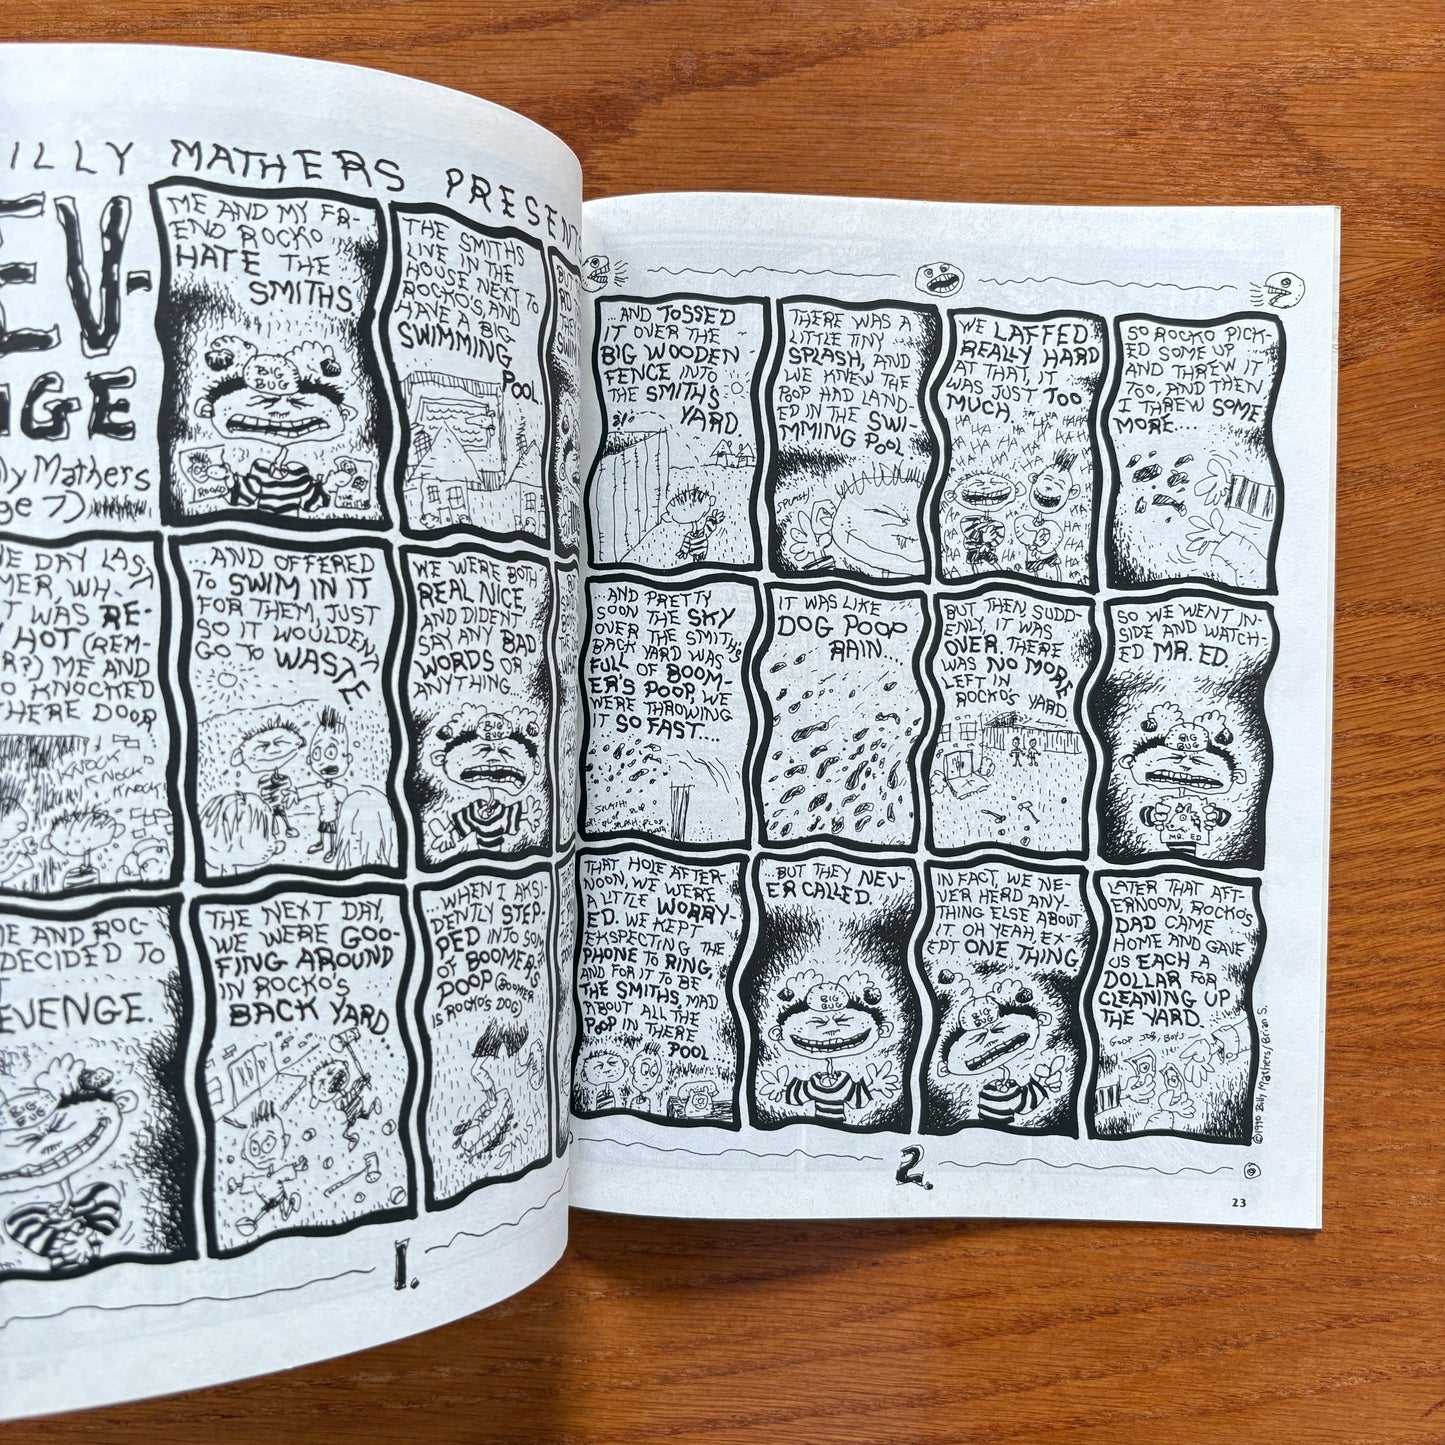 ILLY MATHERS PRESENT
EV-
NGE
ly Mathers
ge 7)
ME AND MY FR-
END ROCKO
HATE THE
SMITHS
BIG
BUG
ROCKO
THE
SMITHS
THE SMITHS
LIVE IN THE
HOUSE NEXT TO
ROCKO'S, AND
HAVE A BIG
SWIMMING
POOL.
NE DAY LAST
MER, WH-
T WAS RE-
Y HOT (REM-
R?) ME AND
O KNOCKED
THERE DOOR
KNOCK
KNOCK
KNOCK!
...AND OFFERED
TO SWIM IN IT
FOR THEM, JUST
SO IT WOULDENT
GO TO WASTE
WE WERE BOTH
REAL NICE
AND DIDENT
SAY ANY BAD
WORDS OR
ANYTHING...
BIG
BUG
ME AND ROC-
DECIDED TO
EVENGE.
BIG
BUG
THE NEXT DAY,
WE WERE GOO-
FING AROUND
IN ROCKO'S
BACK YARD...
...WHEN I AKSI-
DENTLY STEP-
PED INTO SOM
OF BOOMER'S
POOP (BOOMER
IS ROCKO'S DOG)
1.
...AND TOSSED
IT OVER THE
BIG WOODEN
FENCE INTO
THE SMITHS
YARD.
THERE WAS A
LITTLE TINY
SPLASH, AND
WE KNEW THE
POOP HAD LAND-
ED IN THE SWI-
MMING POOL
(SPLASH)
WE LAFFED
REALLY HARD
AT THAT, IT
WAS JUST TOO
MUCH.
HA HA HA
HA HA
HA
SO ROCKO PICK-
ED SOME UP
AND THREW IT
TOO, AND THEN
I THREW SOME
MORE....
...AND PRETTY
SOON THE SKY
OVER THE SMITH'S
BACK YARD WAS
FULL OF BOOM-
ER'S POOP, WE
WERE THROWING
IT SO FAST....
IT WAS LIKE
DOG POOP
RAIN....
BUT THEN SUDD-
ENLY, IT WAS
OVER. THERE
WAS NO MORE
LEFT IN
ROCKO'S YARD
SO WE WENT IN-
SIDE AND WATCH-
ED MR. ED.
BIG
BUG
MR. ED
THAT HOLE AFTER-
NOON, WE WERE
A LITTLE WORRY-
ED. WE KEPT
EKSPECTING THE
PHONE TO RING,
AND FOR IT TO BE
THE SMITHS, MAD
ABOUT ALL THE
POOP IN THERE
POOL...
BUT THEY NEV-
ER CALLED.
BIG
BUG
IN FACT, WE NE-
VER HERD ANY-
THING ELSE ABOUT
IT. OH YEAH, EX-
EPT ONE THING
BIG
BUG
LATER THAT AFT-
ERNOON, ROCKO'S
DAD CAME
HOME AND GAVE
US EACH A
DOLLAR FOR
CLEANING UP
THE YARD.
GOOP JOB, BOYS
©1990 Billy Mathers/Brian S.
2.
23